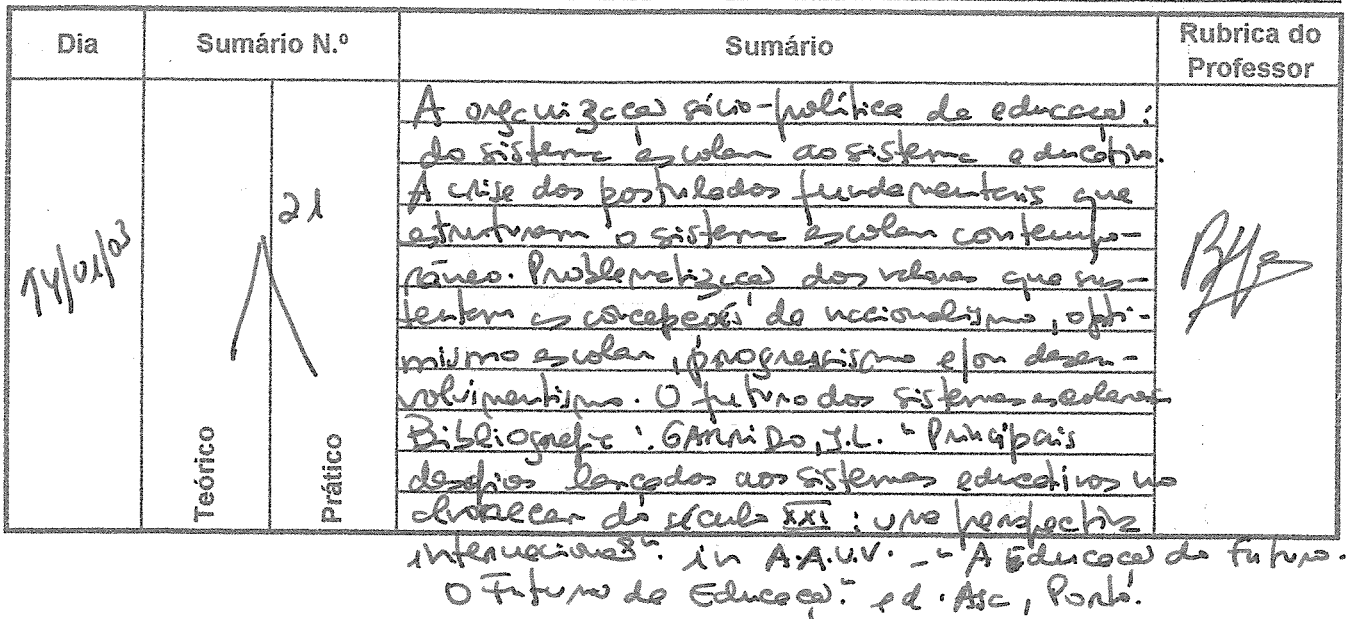 Dia Sumário N.º Sumário Rubrica do Professor
14/01/03
21
Teórico
Prático
A organização sócio-política da educação:
do sistema escolar ao sistema educativo.
A crise dos postulados fundamentais que
estruturam o sistema escolar contempo-
râneo. Problematização dos valores que sus-
tentam as concepções de nacionalismo, opti-
mismo escolar, progressismo e/ou desen-
volvimentismo. O futuro dos sistemas escolares
Bibliografia: GARRIDO, J.L. "Principais
desafios lançados aos sistemas educativos no
alvorecer do século XXI: uma perspectiva
internacional". in A.A.V.V. - "A Educação do Futuro.
O Futuro da Educação". ed. Asa, Porto.